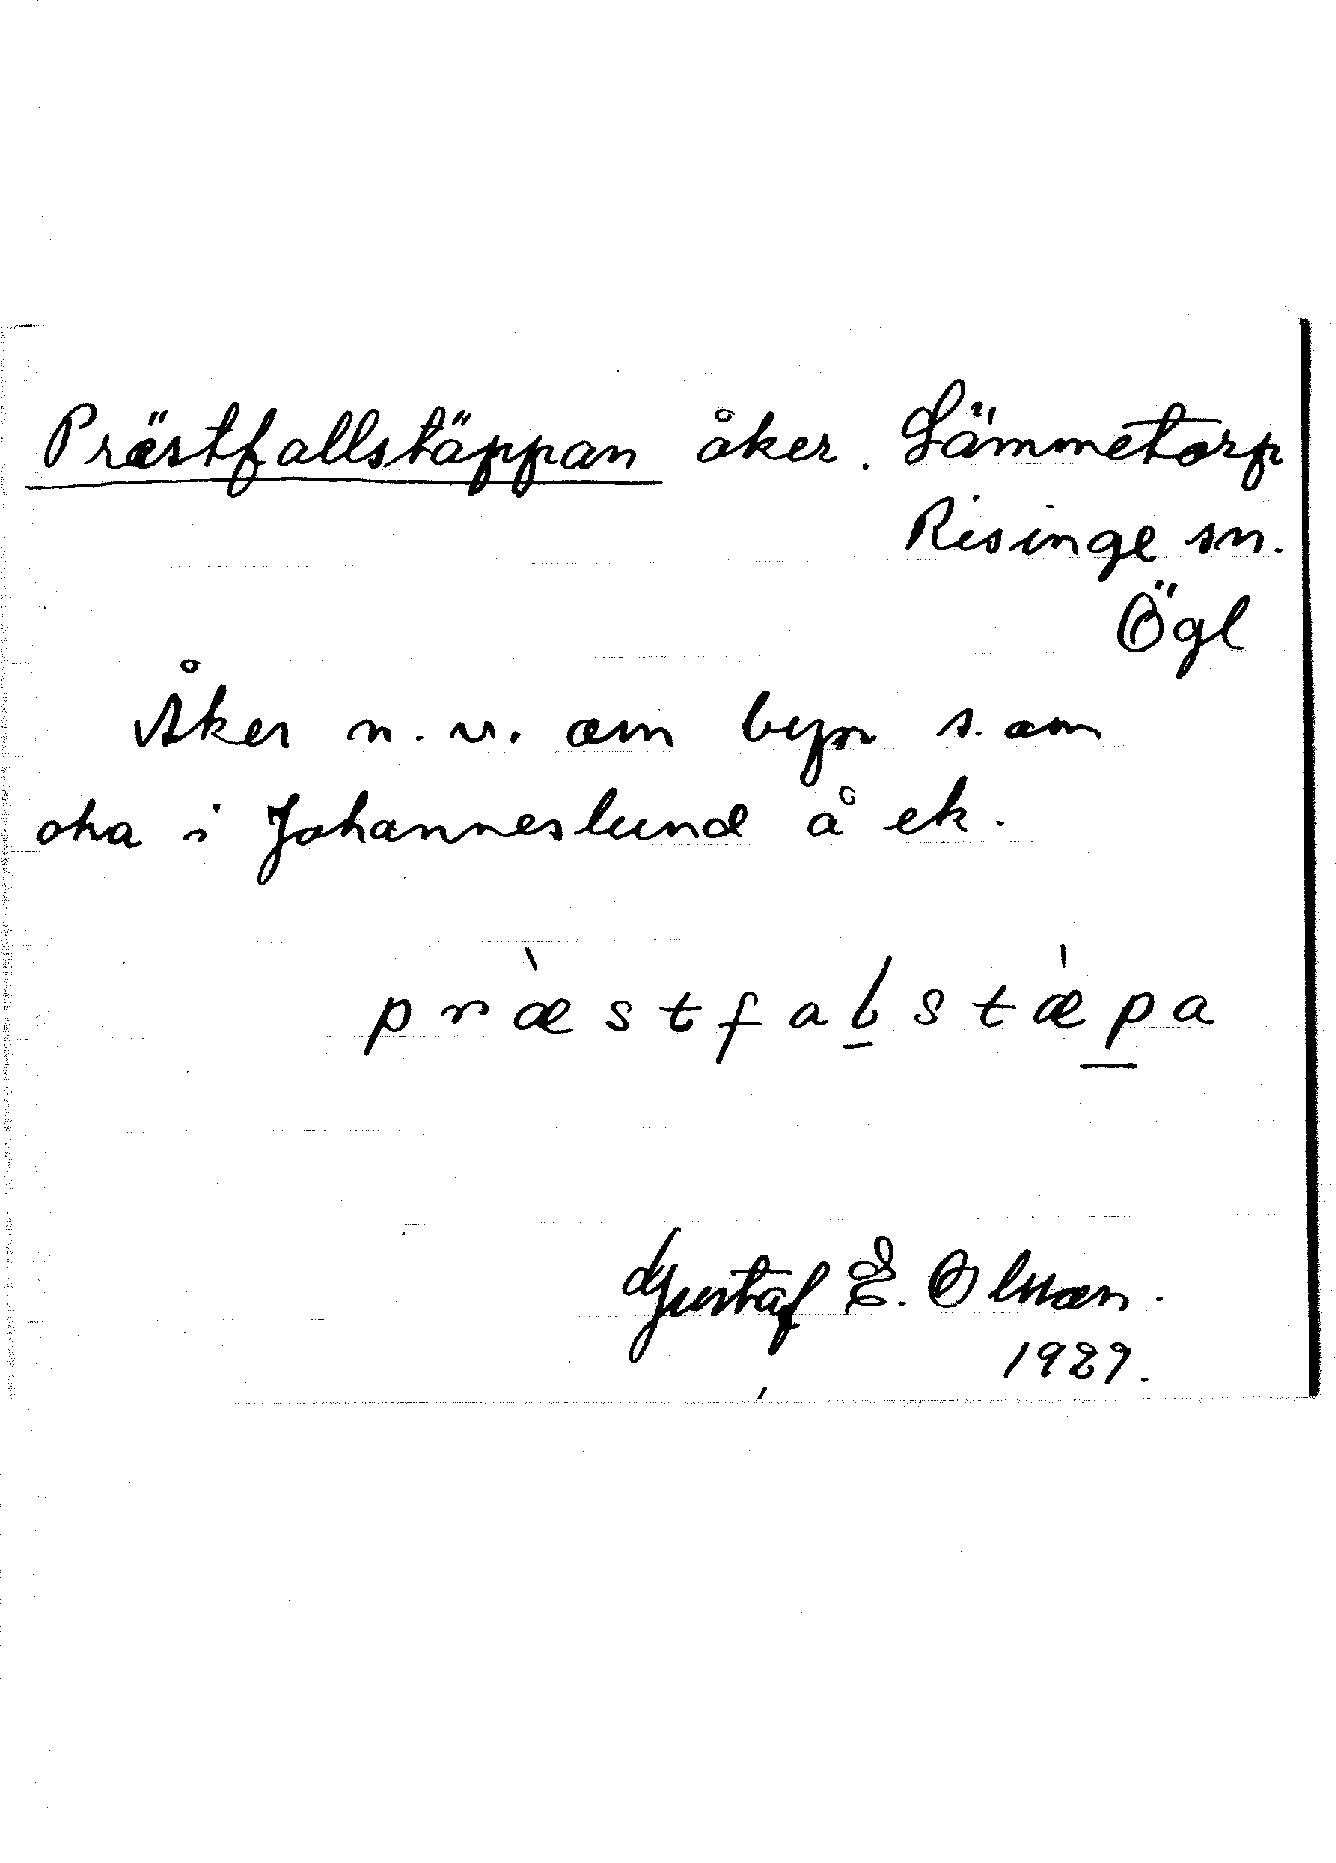 Prästfallstäppan åker. Lämmetorp
Risinge sn.
Ögl
Åker n.v. om byn s. om
oha i Johanneslund å ek.
præ̀stfalstæ̀pa
Gustaf E. Olsson.
1929.